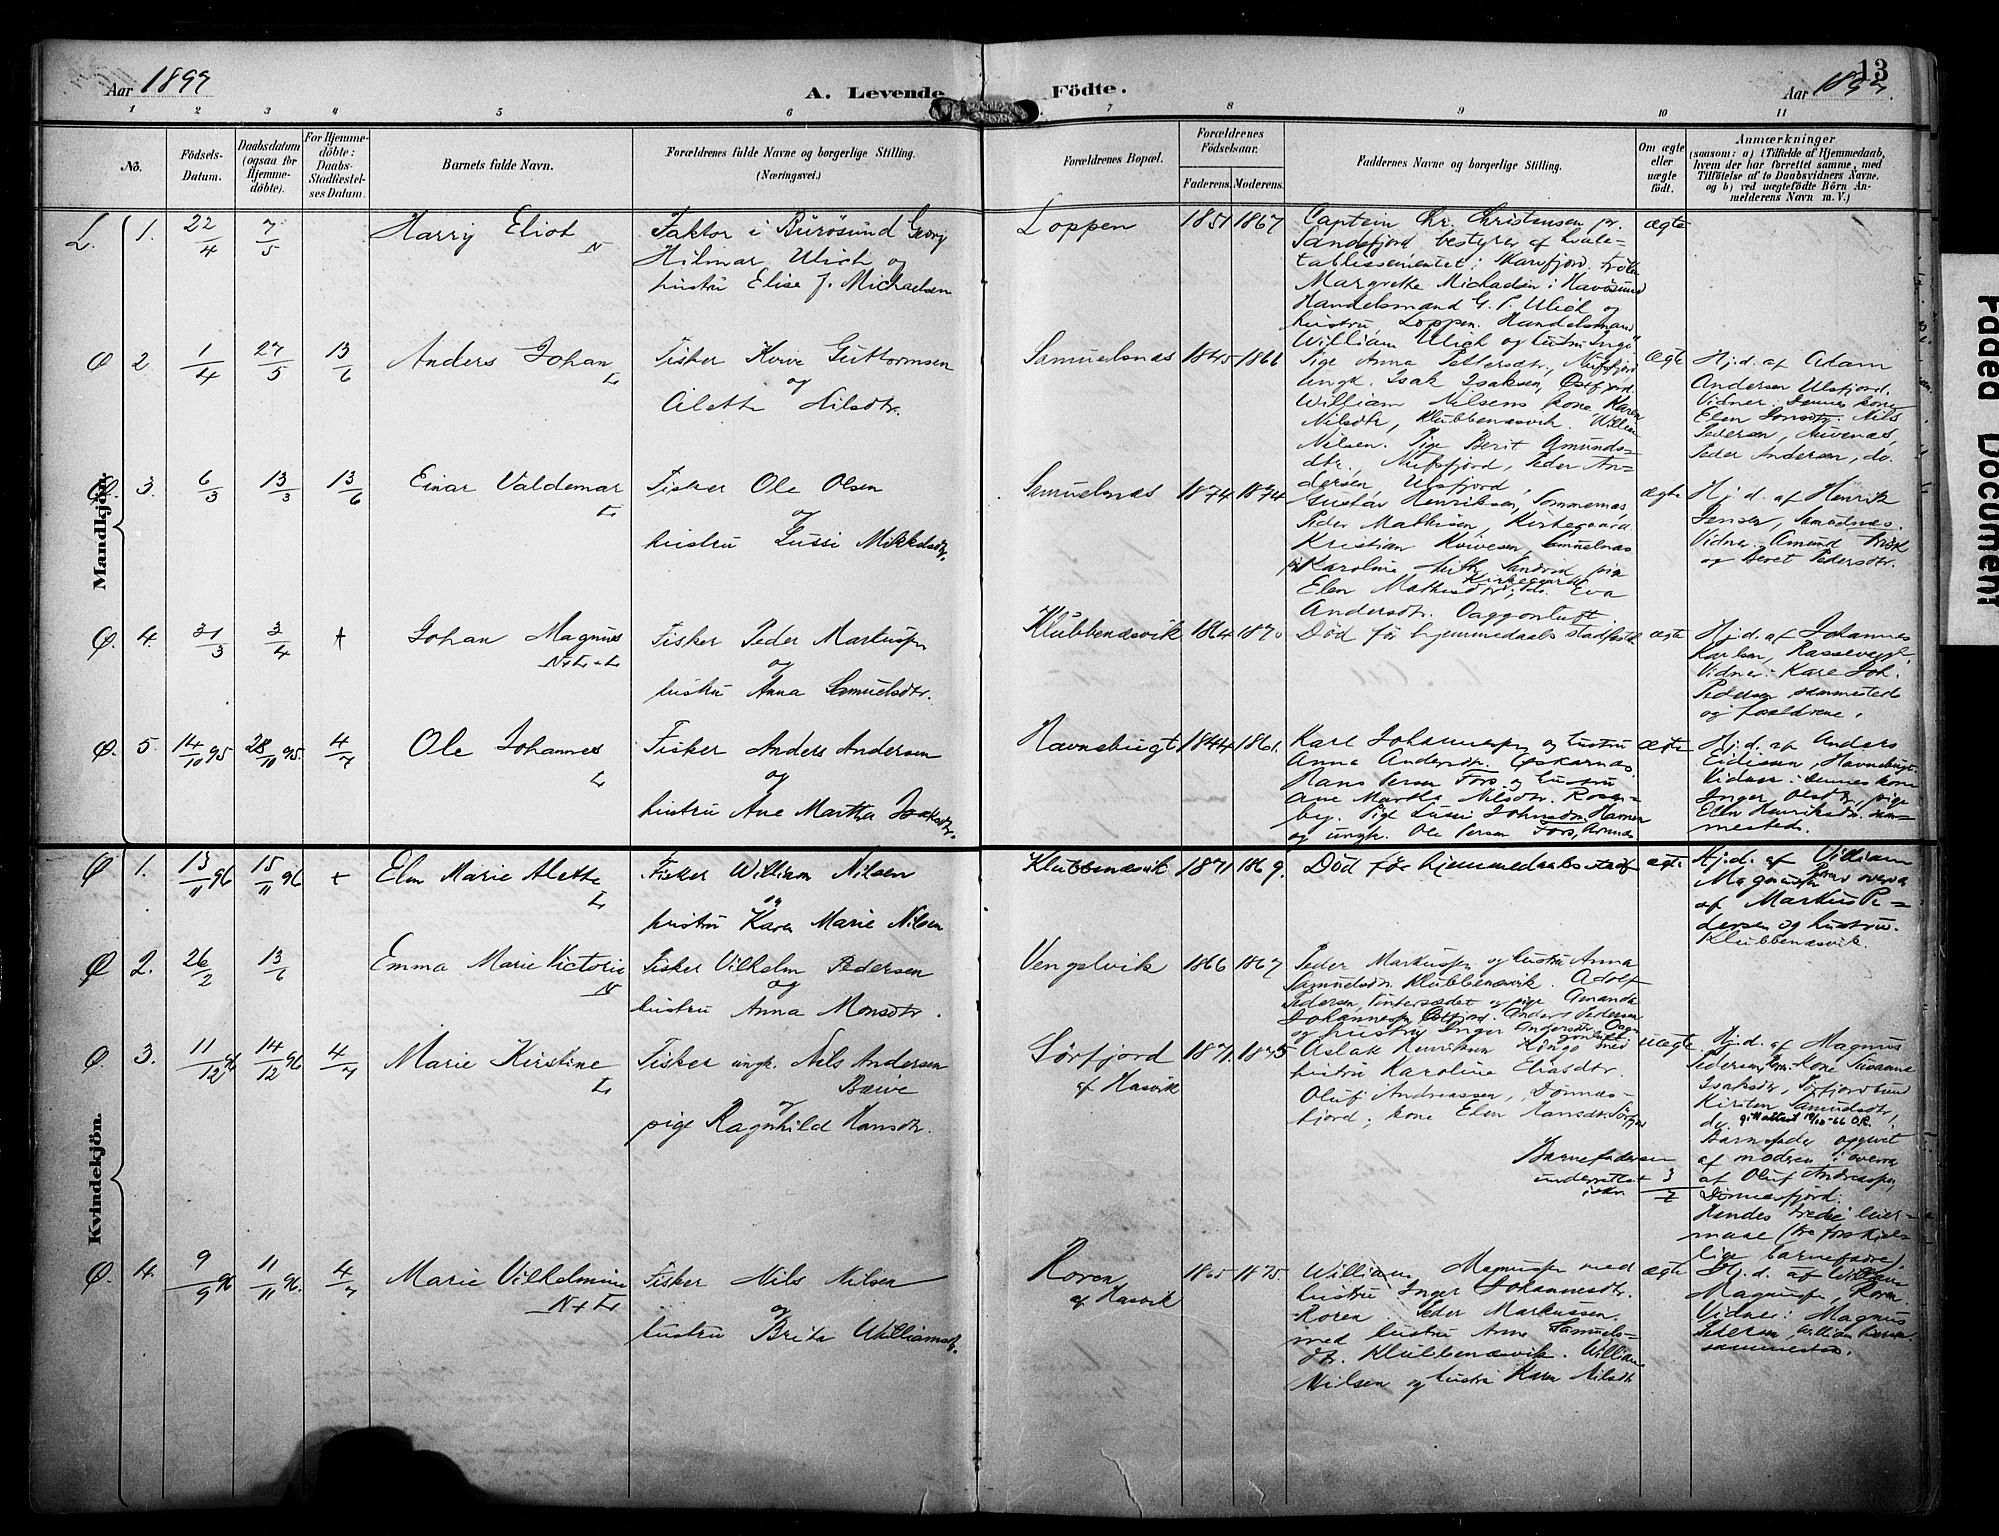 Aar 1897
A. Levende Födte.
Aar 1897.
13
1 2 3 4 5 6 7 8 9 10 11
No.
Födsels-Datum.
Daabsdatum (ogsaa for Hjemmedöbte).
For Hjemmedöbte: Daabs-Stadfæstelses Datum.
Barnets fulde Navn.
Forældrenes fulde Navne og borgerlige Stilling.
(Næringsvei.)
Forældrenes Bopæl.
Forældrenes Födselsaar.
Faderens. Moderens.
Faddernes Navne og borgerlige Stilling.
Om ægte eller uægte födt.
Anmærkninger
(saasom: a) i Tilfælde af Hjemmedaab, hvem der har forrettet samme, med Tilföielse af to Daabsvidners Navne, og b) ved uægtefödte Börn Anmelderens Navn m. V.)
Mandkjön.
L. 1. 22/4 7/5 Harry Eliot N
Faktor i Burösund Georg
Hilmar Ulich og
hustru Elise J. Michaelsen
Loppen 1851 1867
Captein Chr. Christensen pr.
Sandefjord bestyrer af hvale-
tablissementet i
Margrethe Michaelsen i Havösund
Handelsmand G. P. Ulich og
hustru, Loppen. Handelsmand
William Ulich og hustru
ægte
Ø 2 1/4 27/5 13/6 Anders Johan L
Fisker Guttormsen
og
Alette Nilsdtr.
Samuelsnæs 1845 1866
Pige Anna Pettersdtr., Nufsfjord
Ungk. Isak Isaksen, Øksfjord
William Nilsens kone Karen
Nilsdtr, Klubbenæsvik. William
Nilsen. Pige Berit Amunds-
dtr., Nufsfjord, Peder An-
dersen, Ulsfjord
ægte
Hj.d. af Adam
Andersen Ulsfjord.
Vidner: dennes kone
Elen Jonsdtr. Nils
Pedersen,
Peder Andersen, do.
Ø. 3. 6/3 13/3 13/6 Einar Valdemar L
Fisker Ole Olsen
og
hustru Lussi Mikkelsdtr.
Samuelsnæs 1874 1874
Gustav Henriksen, Sommernæs
Peder Mathisen, Kirkegaard
Kristian Samuelnæs
Karoline pige
Elen Mathisdtr, Kirkegaard do. Eva
Andersdtr.
ægte
Hj.d. af Henrik
Jensen, Samuelnæs.
Vidner: Amund
og Beret Pedersdtr.
Ø. 4. 31/3 3/4 + Johan Magnus N+L+L
Fisker Peder Markusen
og
hustru Anna Samuelsdtr.
Klubbenæsvik 1864 1870
Död för hjemmedaabs stadfæst.
ægte
Hj.d. af Johannes
Karlsen,
Vidner: Karl Joh.
Pedersen sammesteds
og forældrene.
Ø. 5. 14/10 95 28/11 95. 4/7 Ole Johannes L
Fisker Anders Andersen
og
hustru Ane Martha Isaksdtr.
Havnebugt 1844 1861.
Karl Johannesen og hustru
Anna Andersdtr. Øskarnæs.
Hans Persen Fors og hustru
Ane Marthe Nilsdtr. Rosen-
berg. Pige Lussi Johnsdtr Havnen
og ungk. Ole Persen Fors,
ægte
Hj.d. af Anders
Eidissen, Havnebugt.
Vidner: dennes kone
Inger Olsdtr, pige
Elen Henriksdtr. sam-
mesteds.
Kvindekjön.
Ø 1. 13/11 96 15/11 96 + Elen Marie Alette L
Fisker William Nilsen
og
hustru Karen Marie Nilsen
Klubbenæsvik 1871 1869.
Död för hjemmedaabs stadf.
ægte
Hj.d. af William
Magnusen
af Markus Pe-
dersen og hustru.
Klubbenæsvik.
Ø 2. 26/2 13/6 Emma Marie Victoria N
Fisker Vilhelm Pedersen
og
hustru Anna Monsdtr.
Vengelvik 1866 1867
Peder Markusen og hustru Anna
Samuelsdtr. Klubbenæsvik. Adolf
Pedersen, Vintersædet og pige Amanda
Johannesen Østfjord. Anders Pedersen
og hustru Inger Andersdtr
Ø. 3. 11/12 96 14/12 96 4/7 Marie Kirstine L
Fisker ungk. Nils Andersen
Bæve
og
pige Ragnhild Hansdtr.
Sörfjord
af Hasvik
1871. 1875
Aslak Henriksen Kongs med
hustru Karoline Eliasdtr.
Oluf Andreassen, Dönnes-
fjord; kone Elen Hansdtr Sörfjord
Barnefaderen
underrettet 3/7
uægte
Hj.d. af Magnus
Pedersen, kone Susanna
Isaksdtr, Sörfjordbund
Kirsten Samuelsdtr,
do. g. Attest 14/10-66 O.R.
Barnefader opgivet
af moderen i overvær
af Oluf Andreassen,
Dönnesfjord.
Hendes tredie leier-
maal (tre forskjel-
lige barnefædre).
Ø. 4. 9/9 96 11/11 96. 4/7 Marie Vilhelmine N+L
Fisker Nils Nilsen
og
hustru Brita Williamsdtr.
Roren
af Hasvik
1865 1875.
William Magnusen med
hustru Inger Johannesdtr.
Roren Peder Markussen
med hustru Anne Samuels-
dtr. Klubbenæsvik. William
Nilsen og hustru Karen Nilsdtr
ægte
Hj.d. af William
Magnusen, Roren.
Vidner: Magnus
Pedersen,
sammesteds.
Paged Document